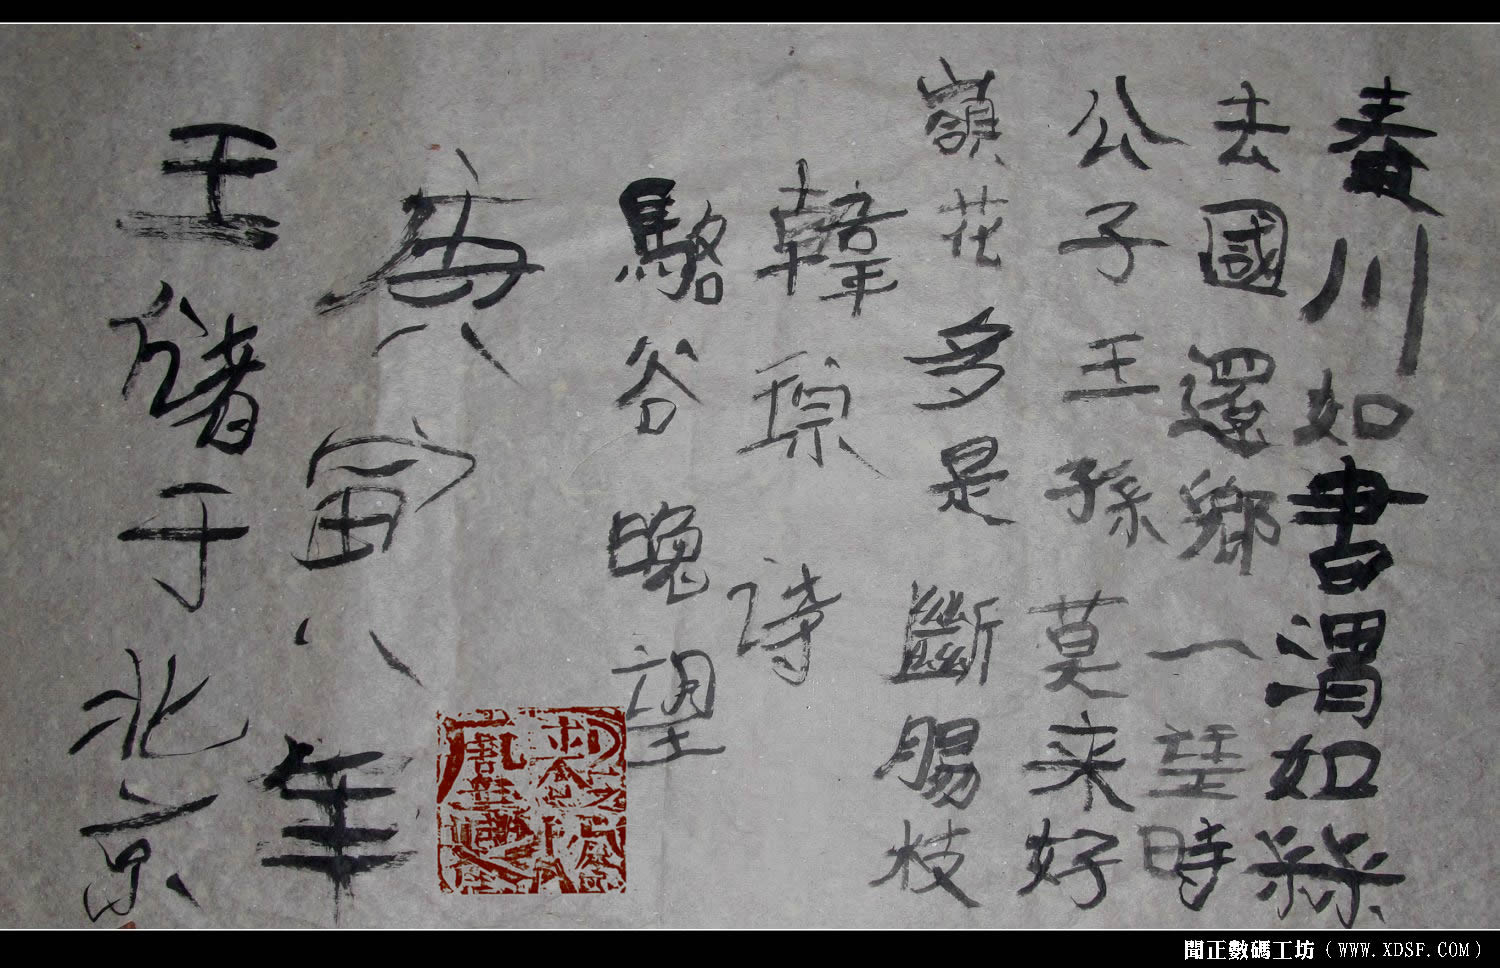 春川如書渭如絲
去國還鄉一望時
公子王孫莫来好
嶺花多是斷腸枝
韓琮诗
駱谷晚望
庚寅年
王储于北京
聞正數碼工坊（WWW.XDSF.COM）